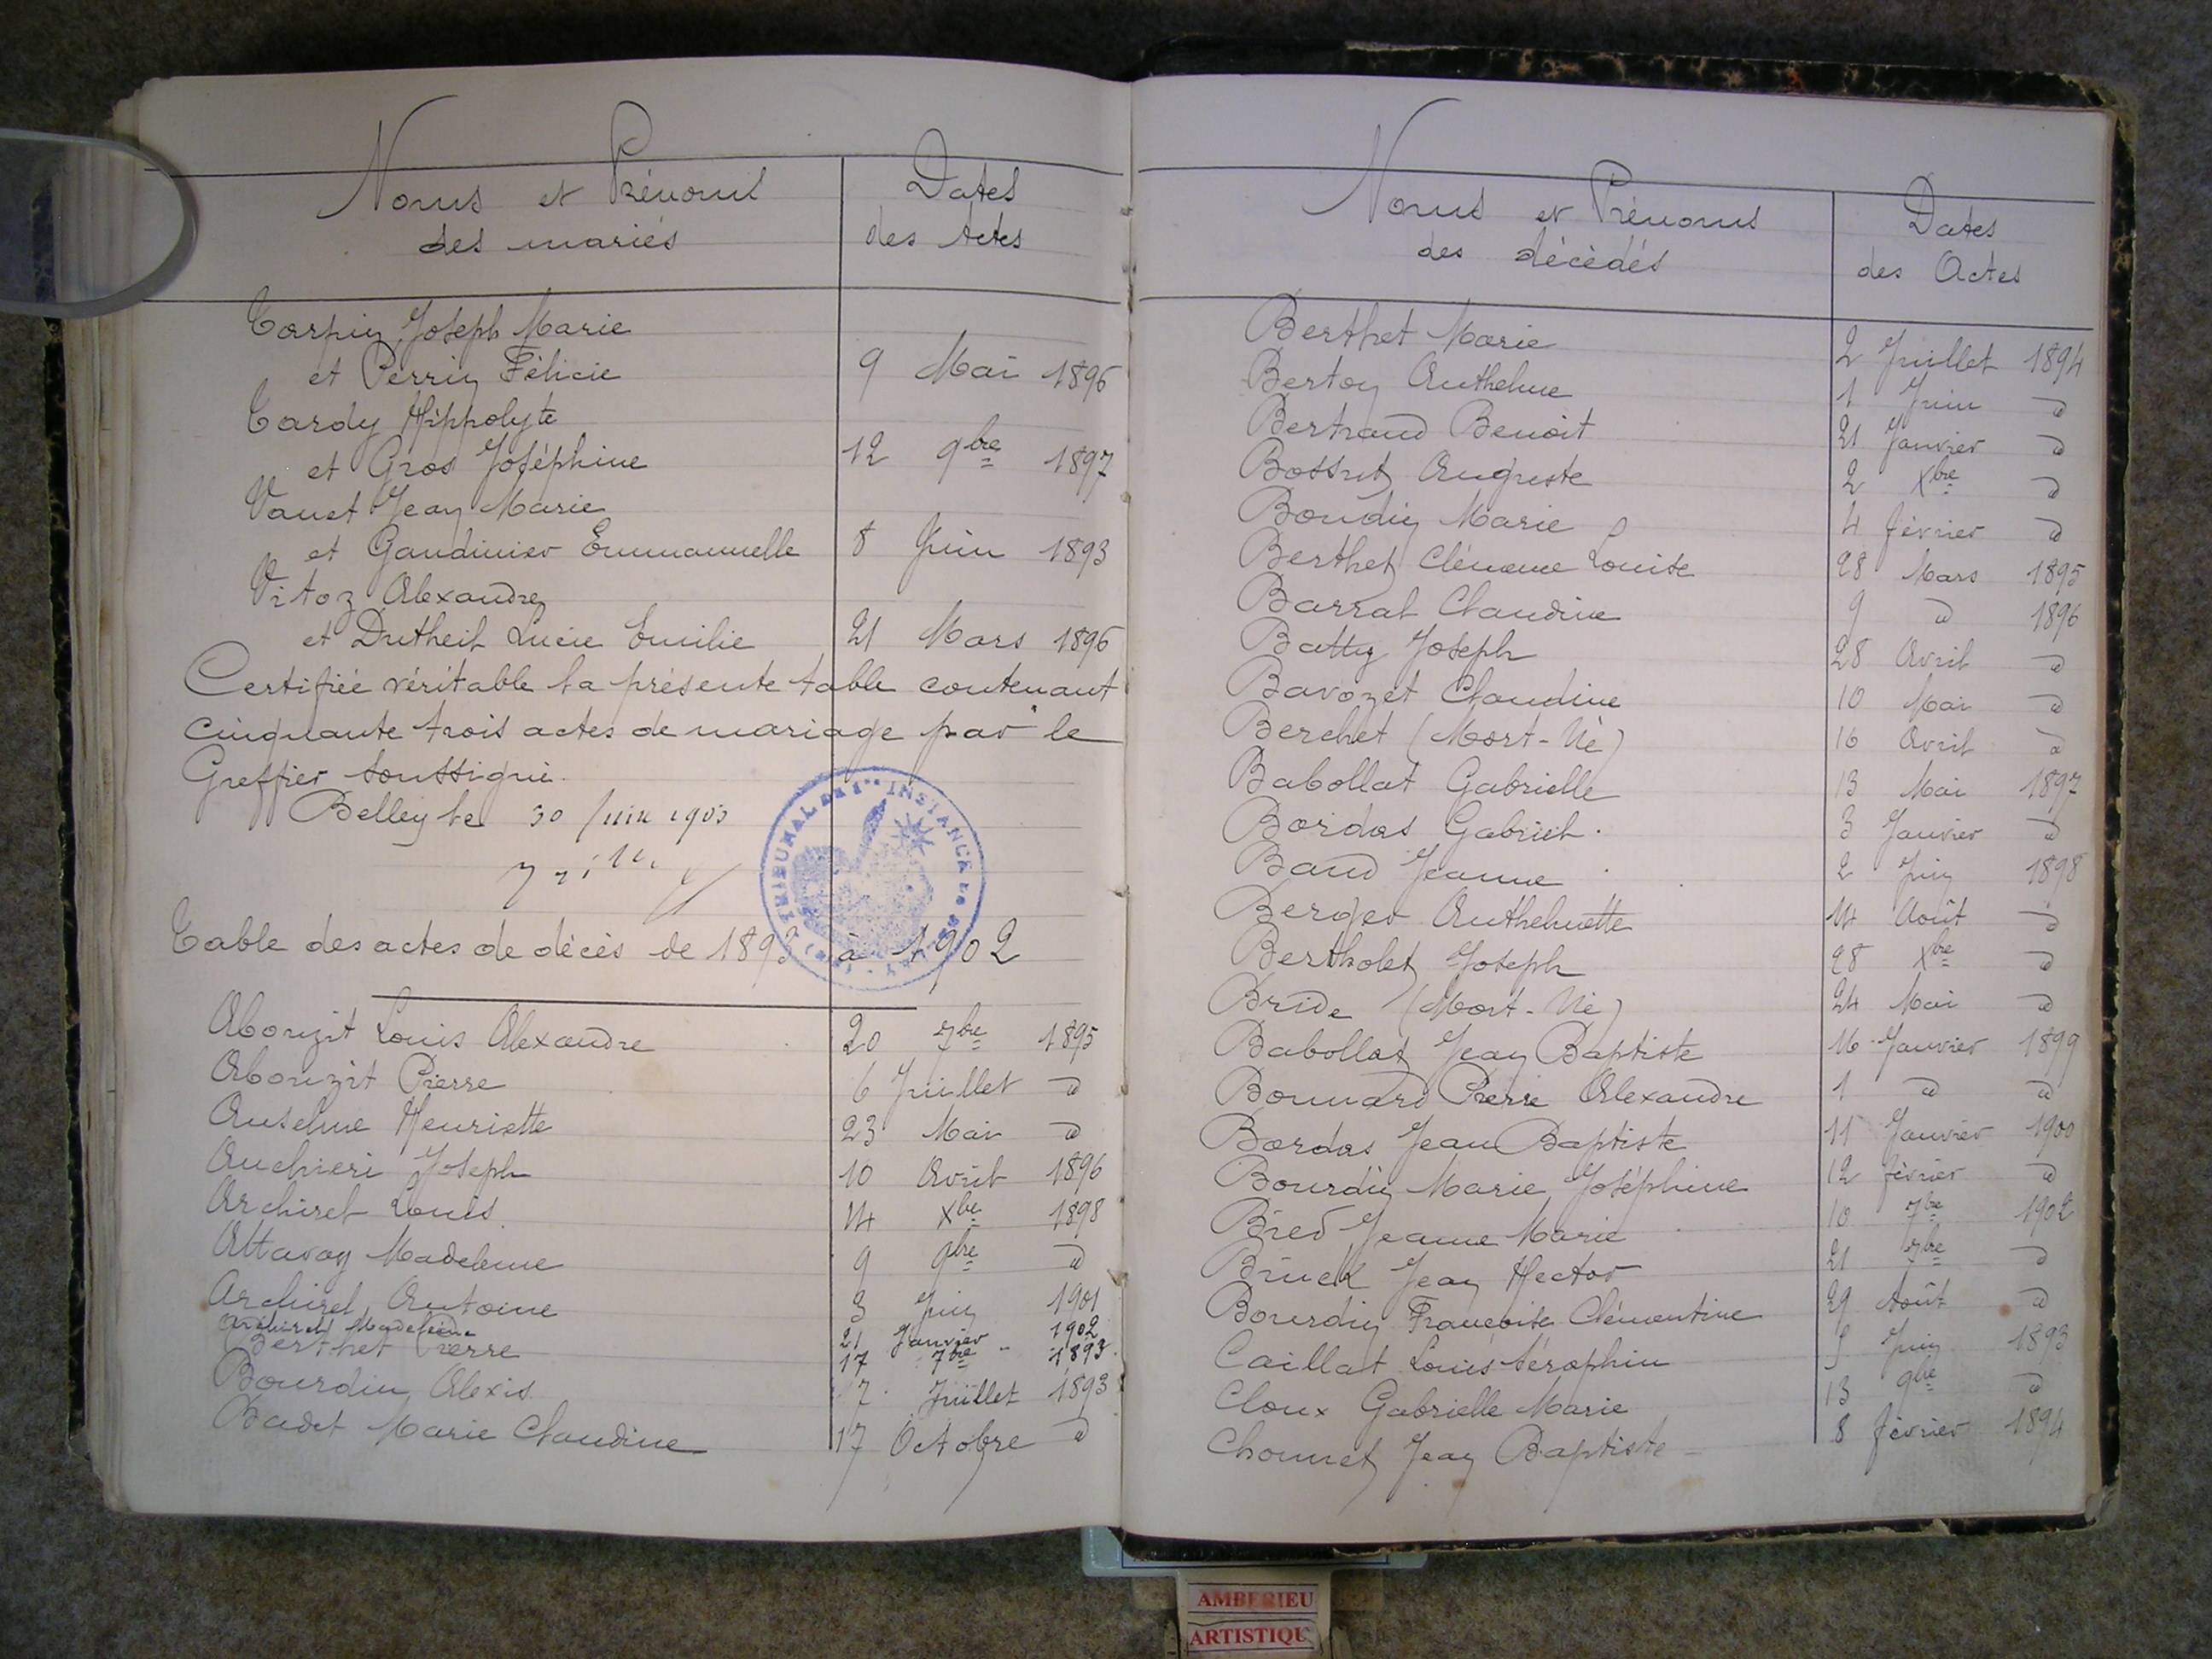 Noms et Prénoms
des mariés
Dates
des Actes
Tarpin Joseph Marie
et Perrin Félicie 9 Mai 1896
Tardy Hippolyte
et Gros Joséphine 12 9bre 1897
Vanet Jean Marie
et Gaudinier Emmanuelle 8 Juin 1893
Vitoz Alexandre
et Dutheil Lucie Emilie 21 Mars 1896
Certifiée véritable la présente table contenant
cinquante trois actes de mariage par le
Greffier soussigné.
Belley le 30 Juin 1903
TRIBUNAL DE 1re INSTANCE
Table des actes de décès de 1893 à 1902
Abouzit Louis Alexandre 20 7bre 1895
Abouzit Pierre 6 Juillet d
Anselme Henriette 23 Mai d
Anchieri Joseph 10 Avril 1896
Archirel Louis 14 Xbre 1898
Attavay Madeleine 9 9bre d
Archirel Antoine 3 Juin 1901
Archirel Madeleine 21 Janvier 1902
Berthet Pierre 17 7bre 1893
Bourdin Alexis 7 Juillet 1893
Badet Marie Claudine 17 Octobre d
Noms et Prénoms
des décédés
Dates
des Actes
Berthet Marie 2 Juillet 1894
Berton Anthelme 1 Juin d
Bertrand Benoit 21 Janvier d
Bossut Auguste 2 Xbre d
Boudin Marie 4 février d
Berthet Clémence Louise 28 Mars 1895
Barral Claudine 9 d 1896
Batty Joseph 28 Avril d
Bavozet Claudine 10 Mai d
Berchet (Mort-Né) 16 Avril d
Babollat Gabrielle 13 Mai 1897
Bordas Gabriel 3 Janvier d
Baud Jeanne 2 Juin 1898
Berger Anthelmette 14 Août d
Bertholet Joseph 28 Xbre d
Bride (Mort-Né) 24 Mai d
Babollat Jean Baptiste 16 Janvier 1899
Bonnard Pierre Alexandre 1 d d
Bordas Jean Baptiste 11 Janvier 1900
Bourdin Marie Joséphine 12 février d
Bred Jeanne Marie 10 7bre 1902
Bruck Jean Hector 21 7bre d
Bourdin Françoise Clémentine 29 Août d
Caillat Louis Séraphin 5 Juin 1893
Cloux Gabrielle Marie 13 9bre d
Chomet Jean Baptiste 8 février 1894
AMBERIEU
ARTISTIQU